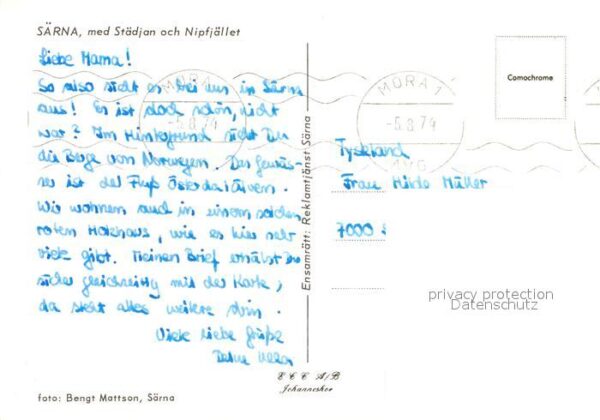 SÄRNA, med Städjan och Nipfjället
Liebe Mama!
So also sieht es bei uns in Särna
aus! Es ist doch schön, nicht
war? Im Hintergrund sieht Du
die Berge von Norwegen. Das Gewäs-
ser ist der Fluß Österdalälven.
Wir wohnen auch in einem solchen
roten Holzhaus, wie es hier sehr
viele gibt. Meinen Brief erhälst Du
sicher gleichzeitig mit der Karte,
da steht alles weitere drin.
Viele liebe Grüße
Deine Ulla
foto: Bengt Mattson, Särna
Ensamrätt: Reklamtjänst Särna
MORA 1
-5.8.74
AVG
Comochrome
Tyskland
Frau Hilde Müller
7000
privacy protection
Datenschutz
E C C A/B
Johanneshov